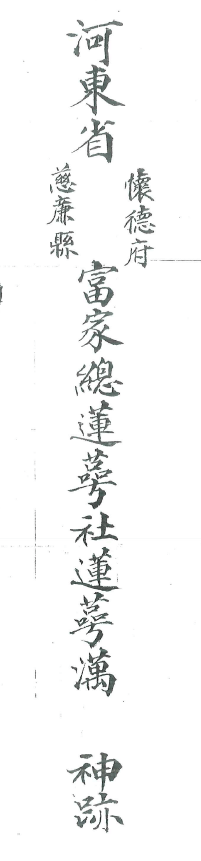 河東省
懷德府
慈廉縣
富家總蓮萼社蓮萼溝
神跡